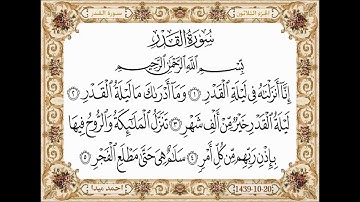 الجزء الثلاثون
سورة القدر
سُورَةُ القَدْرِ
بِسْمِ اللَّهِ الرَّحْمَٰنِ الرَّحِيمِ
إِنَّا أَنزَلْنَاهُ فِي لَيْلَةِ الْقَدْرِ ١ وَمَا أَدْرَاكَ مَا لَيْلَةُ الْقَدْرِ ٢
لَيْلَةُ الْقَدْرِ خَيْرٌ مِّنْ أَلْفِ شَهْرٍ ٣ تَنَزَّلُ الْمَلَائِكَةُ وَالرُّوحُ فِيهَا
بِإِذْنِ رَبِّهِم مِّن كُلِّ أَمْرٍ ٤ سَلَامٌ هِيَ حَتَّىٰ مَطْلَعِ الْفَجْرِ ٥
1439-10-20